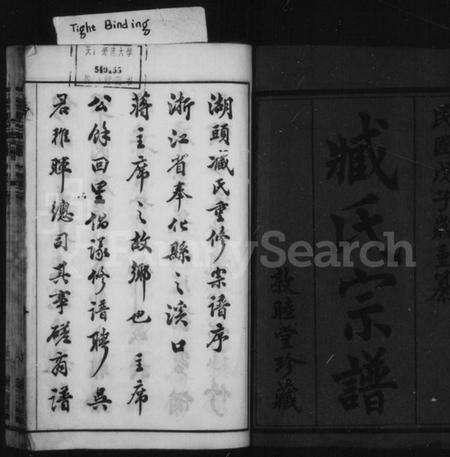 Tight Binding
549255
民國戊子年重纂
臧氏宗譜
敦睦堂珍藏
湖頭臧氏重修宗譜序
浙江省奉化縣之溪口
蔣主席之故鄉也主席
公餘回里倡議修譜聘吳
君稚暉總司其事磋商譜